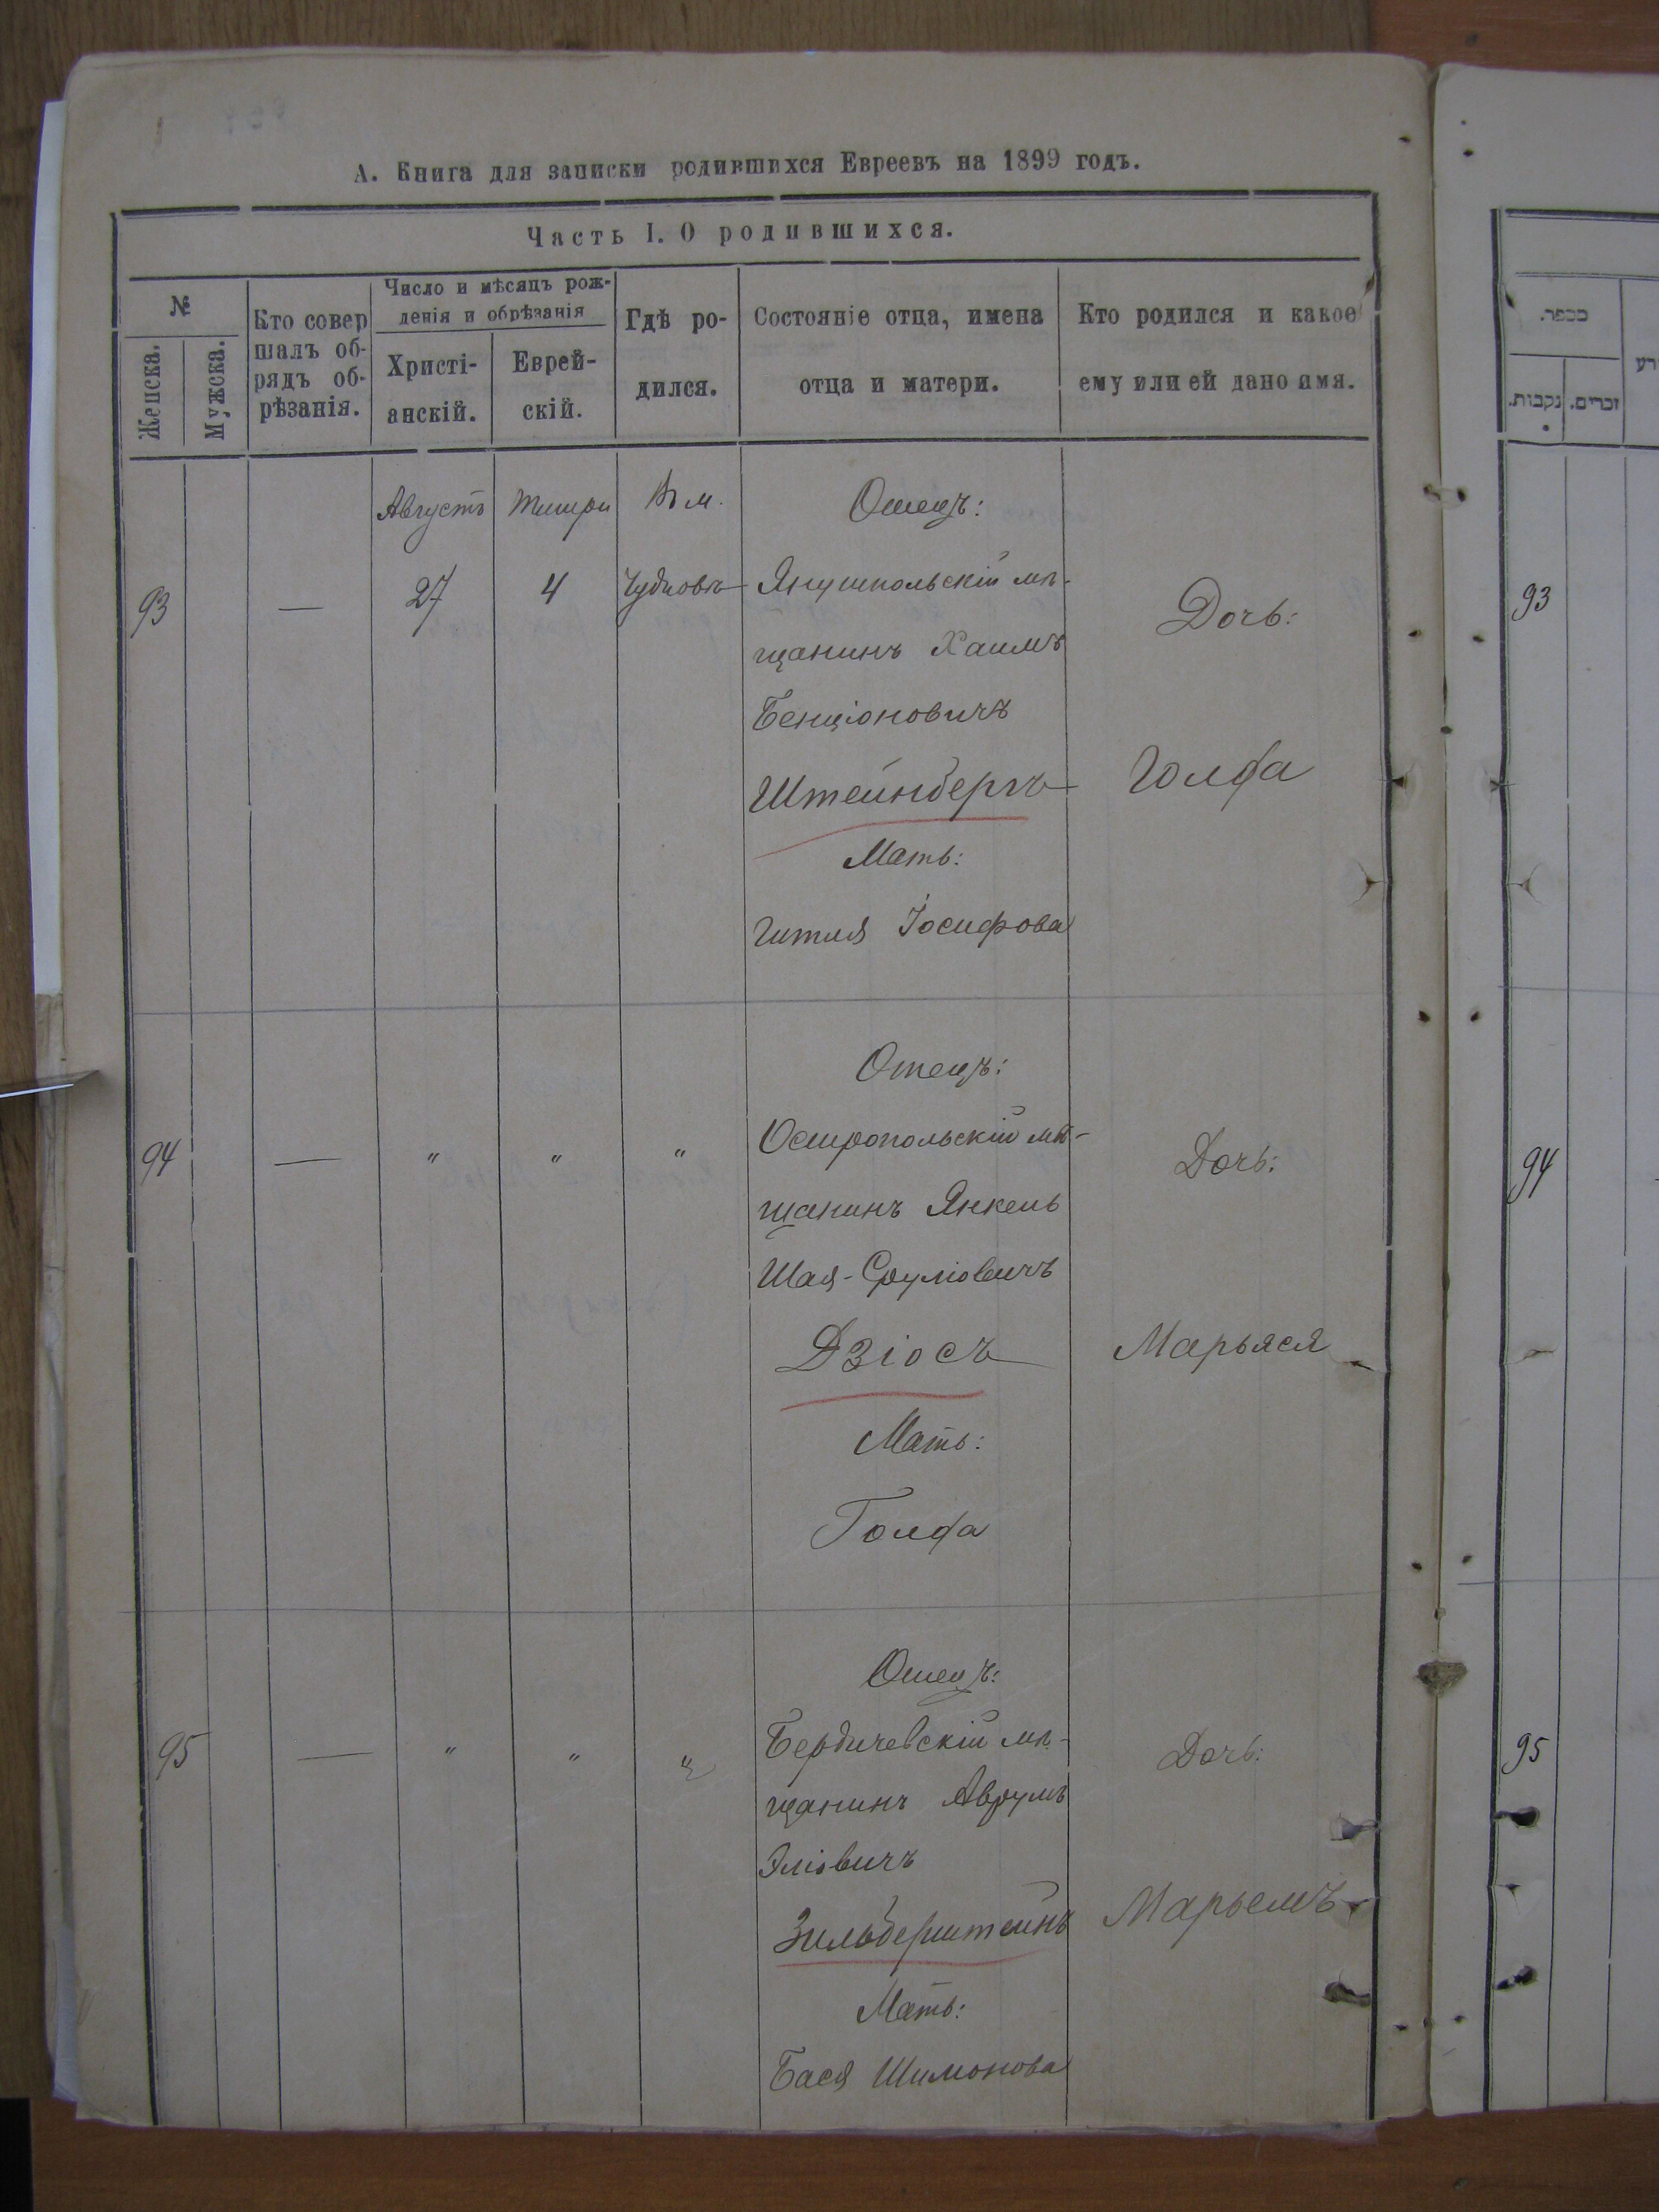 А. Книга для записки родившихся Евреевъ на 1899 годъ.
Часть I. О родившихся.
№
Женска.
Мужска.
Кто совер
шалъ об-
рядъ об-
рѣзанія.
Число и мѣсяцъ рож-
денія и обрѣзанія
Христі-
анскій.
Еврей-
скій.
Гдѣ ро-
дился.
Состояніе отца, имена
отца и матери.
Кто родился и какое
ему или ей дано имя.
93
—
Августъ
27
Тишри
4
Въ м.
Чудновѣ
Отецъ:
Янушпольскій мѣ-
щанинъ Хаимъ
Бенціоновичъ
Штейнбергъ
Мать:
Гитля Іосифова
Дочь:
Голда
94
—
"
"
"
Отецъ:
Остропольскій мѣ-
щанинъ Янкель
Шая-Сруліовичъ
Дзіосъ
Мать:
Голда
Дочь:
Марьяся
95
—
"
"
"
Отецъ:
Бердичевскій мѣ-
щанинъ Аврумъ
Эліовичъ
Зильберштейнъ
Мать:
Бася Шимонова
Дочь:
Марьемъ
מספר.
נקבות.
זכרים.
93
94
95